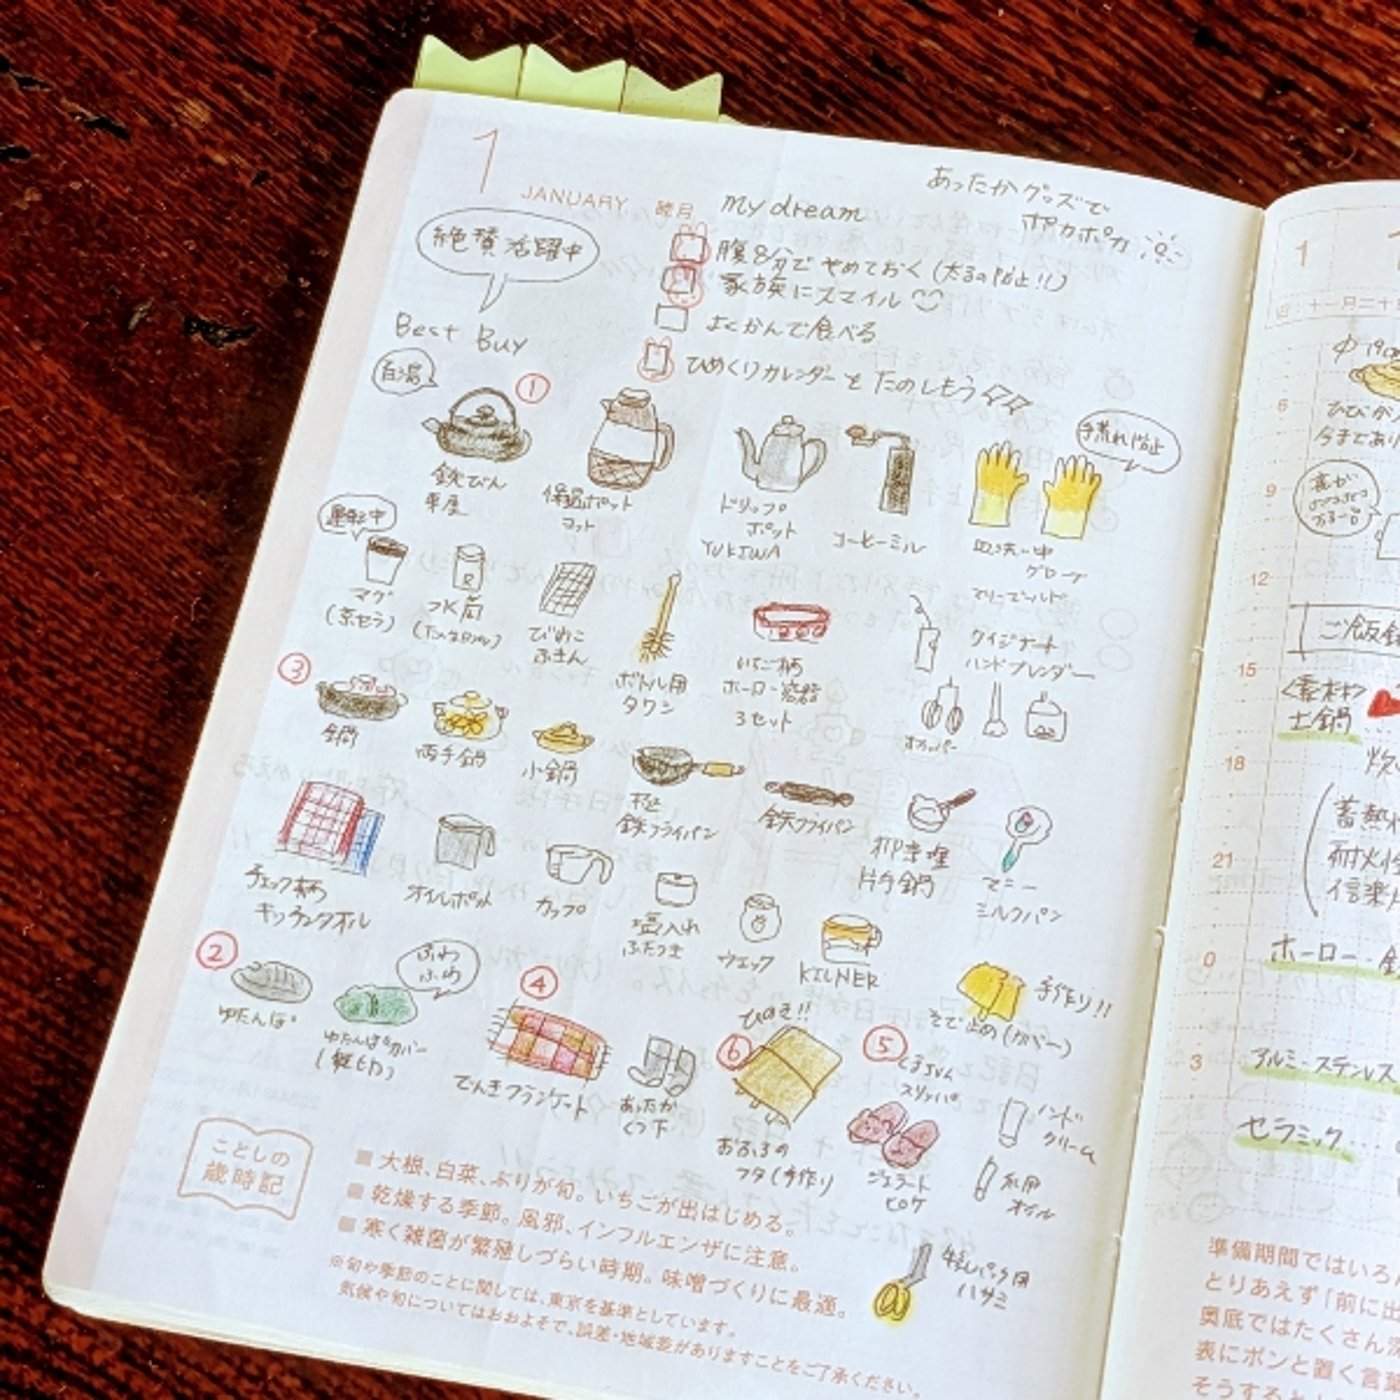 1
JANUARY 睦月
my dream
あったかグッズで
ポカポカ
絶賛活躍中
腹8分でやめておく(太るの防止!!)
家族にスマイル
よくかんで食べる
ひめくりカレンダーをたのしもう
Best Buy
白湯
①
鉄びん
保温ポット
ドリップ
ポット
YUKIWA
コーヒーミル
手荒れ防止
皿洗い中
グローブ
マリーゴールド
運転中
マグ
(京セラ)
水筒
びわこ
ふきん
ボトル用
タワシ
いちご柄
ホーロー容器
3セット
クイジナート
ハンドブレンダー
③
鍋
両手鍋
小鍋
極
鉄フライパン
鉄フライパン
柳宗理
片手鍋
マニー
ミルクパン
チェック柄
キッチンタオル
オイルポット
カップ
塩入れ
ふたつき
ウエック
KILNER
②
ゆたんぽ
ふわ
ふわ
ゆたんぽカバー
④
でんきブランケット
あったか
くつ下
ひのき!!
⑥
おふろの
フタ(手作り
手作り!!
そで止め(カバー)
⑤
もこちゃん
スリッパ
ジェラート
ピケ
ハンド
クリーム
爪用
オイル
牛乳パック用
ハサミ
ことしの
歳時記
■ 大根、白菜、ぶりが旬。いちごが出はじめる。
■ 乾燥する季節。風邪、インフルエンザに注意。
■ 寒く雑菌が繁殖しづらい時期。味噌づくりに最適。
※旬や季節のことに関しては、東京を基準としています。
気候や旬についてはおおよそで、誤差・地域差がありますことをご了承ください。
1
旧:十一月二十
6
ひびが
今まであり
9
12
ご飯鍋
15
<素材>
土鍋
18
蓄熱
耐火
信楽
21
0
ホーロー
3
アルミ・ステンレス
セラミック
準備期間ではいろ
とりあえず「前に出
奥底ではたくさん深
表にポンと置く言
そうす